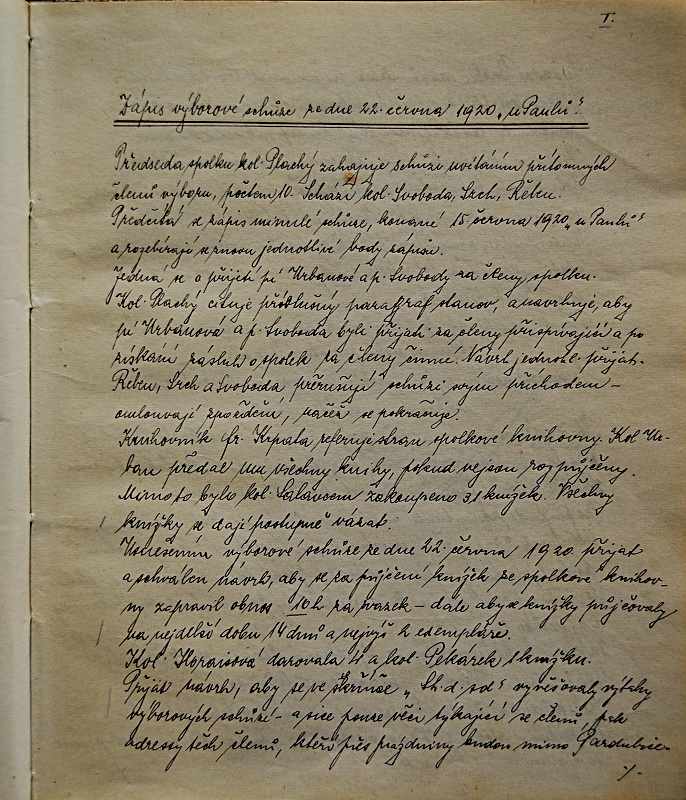 I.
Zápis výborové schůze ze dne 22. června 1920 „u Paulů."
Předseda spolku kol. Plachý zahajuje schůzi uvítáním přítomných
členů výboru, počtem 10. Schází kol. Svoboda, Srch, Řeben.
Předčítá se zápis minulé schůze, konané 15. června 1920 „u Paulů"
a rozebírají se znovu jednotlivé body zápisu.
Jedná se o přijetí pí Urbanové a p. Svobody za členy spolku.
Kol. Plachý cituje příslušný paragraf stanov, a navrhuje, aby
pí Urbanová a p. Svoboda byli přijati za členy přispívající a po
získání zásluh o spolek za členy činné. Návrh jednohl. přijat.
Řeben, Srch a Svoboda přerušují schůzi svým příchodem –
omlouvají zpoždění, načež se pokračuje.
Knihovník fr. Krpata referuje stran spolkové knihovny. Kol Ur-
ban předal mu všechny knihy, pokud nejsou rozpůjčeny.
Mimo to bylo kol. zakoupeno 31 knížek. Všechny
knížky se dají postupně vázat.
Usnesením výborové schůze ze dne 22. června 1920 přijat
a schválen návrh, aby se za půjčení knížek ze spolkové knihov-
ny zapravil obnos 10 h za svazek – dále aby se knížky půjčovaly
na nejdelší dobu 14 dnů a nejvýš 2 exempláře.
Kol. Horaisová darovala 4 a kol. Pekárek 1 knížku.
Přijat návrh, aby se ve skřínce „St. d. sd" vyvěšovaly výtahy
výborových schůzí – a sice pouze věci týkající se členů, pak
adressy těch členů, kteří přes prázdniny budou mimo Pardubice.
./.